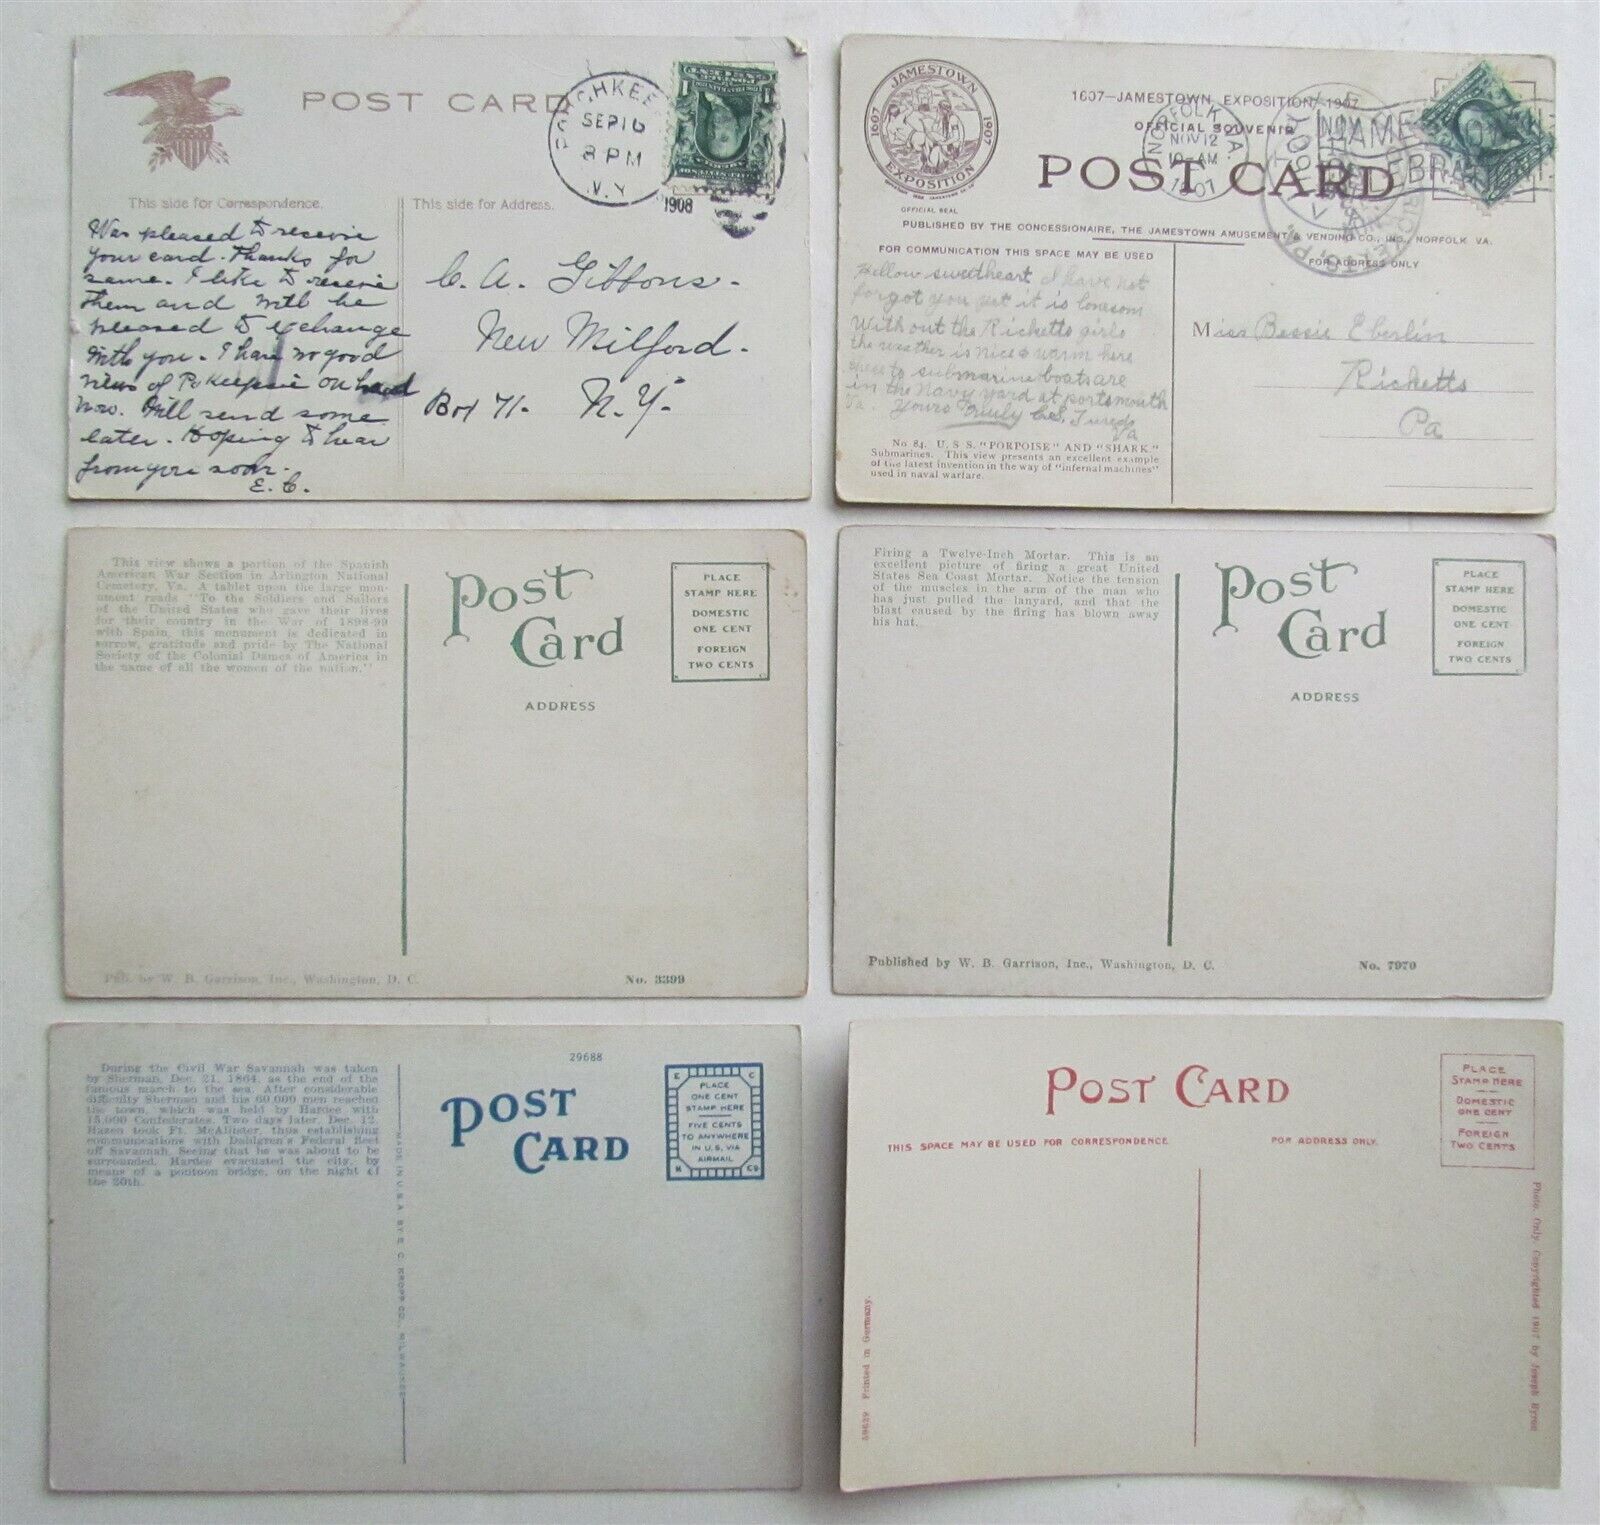 POST CARD
POUGHKEE
SEP 16
8 PM
N.Y.
1908
This side for Correspondence.
This side for Address.
Was pleased to receive
your card. Thanks for
same. I like to receive
them and will be
pleased to exchange
with you. I have no good
views of Pokeepsie on hand
now. Will send some
later. Hoping to hear
from you soon.
E. C.
C. A. Gibbons.
New Milford.
Box 71. N.Y.
JAMESTOWN
1607 1907
EXPOSITION
OFFICIAL SEAL
1607—JAMESTOWN EXPOSITION—1907
OFFICIAL SOUVENIR
POST CARD
NORFOLK VA.
NOV 12
10-AM
1907
PUBLISHED BY THE CONCESSIONAIRE, THE JAMESTOWN AMUSEMENT & VENDING CO., INC., NORFOLK VA.
FOR COMMUNICATION THIS SPACE MAY BE USED
FOR ADDRESS ONLY
Hellow sweetheart I have not
forgot you yet it is lonesom
Without the Ricketts girls
the weather is nice & warm here
submarine boats are
in the Navy yard at portsmouth
Va. Yours Truly
Va
Miss Bessie Eberlin
Ricketts
Pa
No 84. U. S. S. "PORPOISE" AND "SHARK"
Submarines. This view presents an excellent example
of the latest invention in the way of "infernal machines"
used in naval warfare.
This view shows a portion of the Spanish
American War Section in Arlington National
Cemetery, Va. A tablet upon the large mon-
ument reads "To the Soldiers and Sailors
of the United States who gave their lives
for their country in the War of 1898-99
with Spain, this monument is dedicated in
sorrow, gratitude and pride by The National
Society of the Colonial Dames of America in
the name of all the women of the nation."
Post
Card
ADDRESS
PLACE
STAMP HERE
DOMESTIC
ONE CENT
FOREIGN
TWO CENTS
Pub. by W. B. Garrison, Inc., Washington, D. C.
No. 3399
Firing a Twelve-Inch Mortar. This is an
excellent picture of firing a great United
States Sea Coast Mortar. Notice the tension
of the muscles in the arm of the man who
has just pulled the lanyard, and that the
blast caused by the firing has blown away
his hat.
Post
Card
ADDRESS
PLACE
STAMP HERE
DOMESTIC
ONE CENT
FOREIGN
TWO CENTS
Published by W. B. Garrison, Inc., Washington, D. C.
No. 7970
During the Civil War Savannah was taken
by Sherman, Dec. 21, 1864, as the end of the
famous march to the sea. After considerable
difficulty Sherman and his 60,000 men reached
the town, which was held by Hardee with
15,000 Confederates. Two days later, Dec. 12,
Hazen took Ft. McAllister, thus establishing
communications with Dahlgren's Federal fleet
off Savannah. Seeing that he was about to be
surrounded, Hardee evacuated the city, by
means of a pontoon bridge, on the night of
the 20th.
MADE IN U.S.A. BY E. C. KROPP CO., MILWAUKEE
29688
POST
CARD
E C
PLACE
ONE CENT
STAMP HERE
FIVE CENTS
TO ANYWHERE
IN U.S. VIA
AIRMAIL
K CO
POST CARD
THIS SPACE MAY BE USED FOR CORRESPONDENCE.
FOR ADDRESS ONLY.
PLACE
STAMP HERE
DOMESTIC
ONE CENT
FOREIGN
TWO CENTS
59629 Printed in Germany.
Photo. Only. Copyrighted 1907 by Joseph Byron